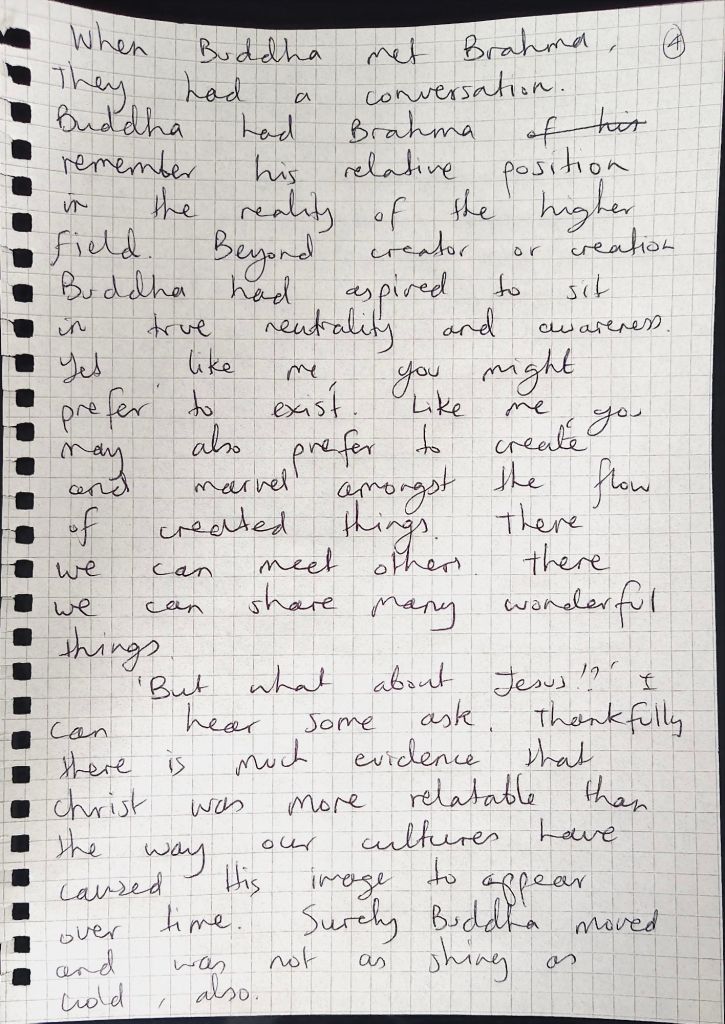 When Buddha met Brahma, ④
They had a conversation.
Buddha had Brahma ~~of his~~
remember his relative position
in the reality of the higher
field. Beyond creator or creation
Buddha had aspired to sit
in true neutrality and awareness.
Yet, like me, you might
prefer to exist. Like me, you
may also prefer to create
and marvel amongst the flow
of created things. There
we can meet others. There
we can share many wonderful
things.
'But what about Jesus!?' I
can hear some ask. Thankfully
there is much evidence that
Christ was more relatable than
the way our cultures have
caused His image to appear
over time. Surely Buddha moved
and was not as shiny as
Gold, also.